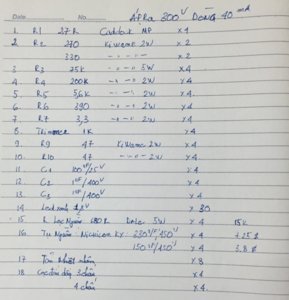 Date No. ÁP Ra 300V DÒNG 40 mA
1. R1 27R Caddock MP x 4
2 R2 270 Kiwame 2W x 2
330 -〃-〃- 2W x 2
3 R3 25K -〃- 5W x 4
4 R4 200K -〃-〃- 2W. x 4
5 R5 5,6K -〃-〃- 2W. x 4
6 R6 390 -〃-〃- 2W x 4
7 R7 3,3 -〃-〃- 2W. x 4
8 Trimmer 1K x 4
9 R9 47 Kiwame 2W x 4
10 R10 47 -〃-〃- 2W. x 4
11 C1 100uF/25V x 4
12 C2 1uF/400V x 4
13 C3 1uF/400V x 4
14 Led xanh V x 30
15 R Lọc Nguồn 180R Dale 5W x 4 15K
16 Tụ Nguồn Nichicon KX 230uF/450V x 4
150uF/450V x 4
17 Tản Nhiệt nhôm x 8
18 3 chân x 4
4 chân x 4